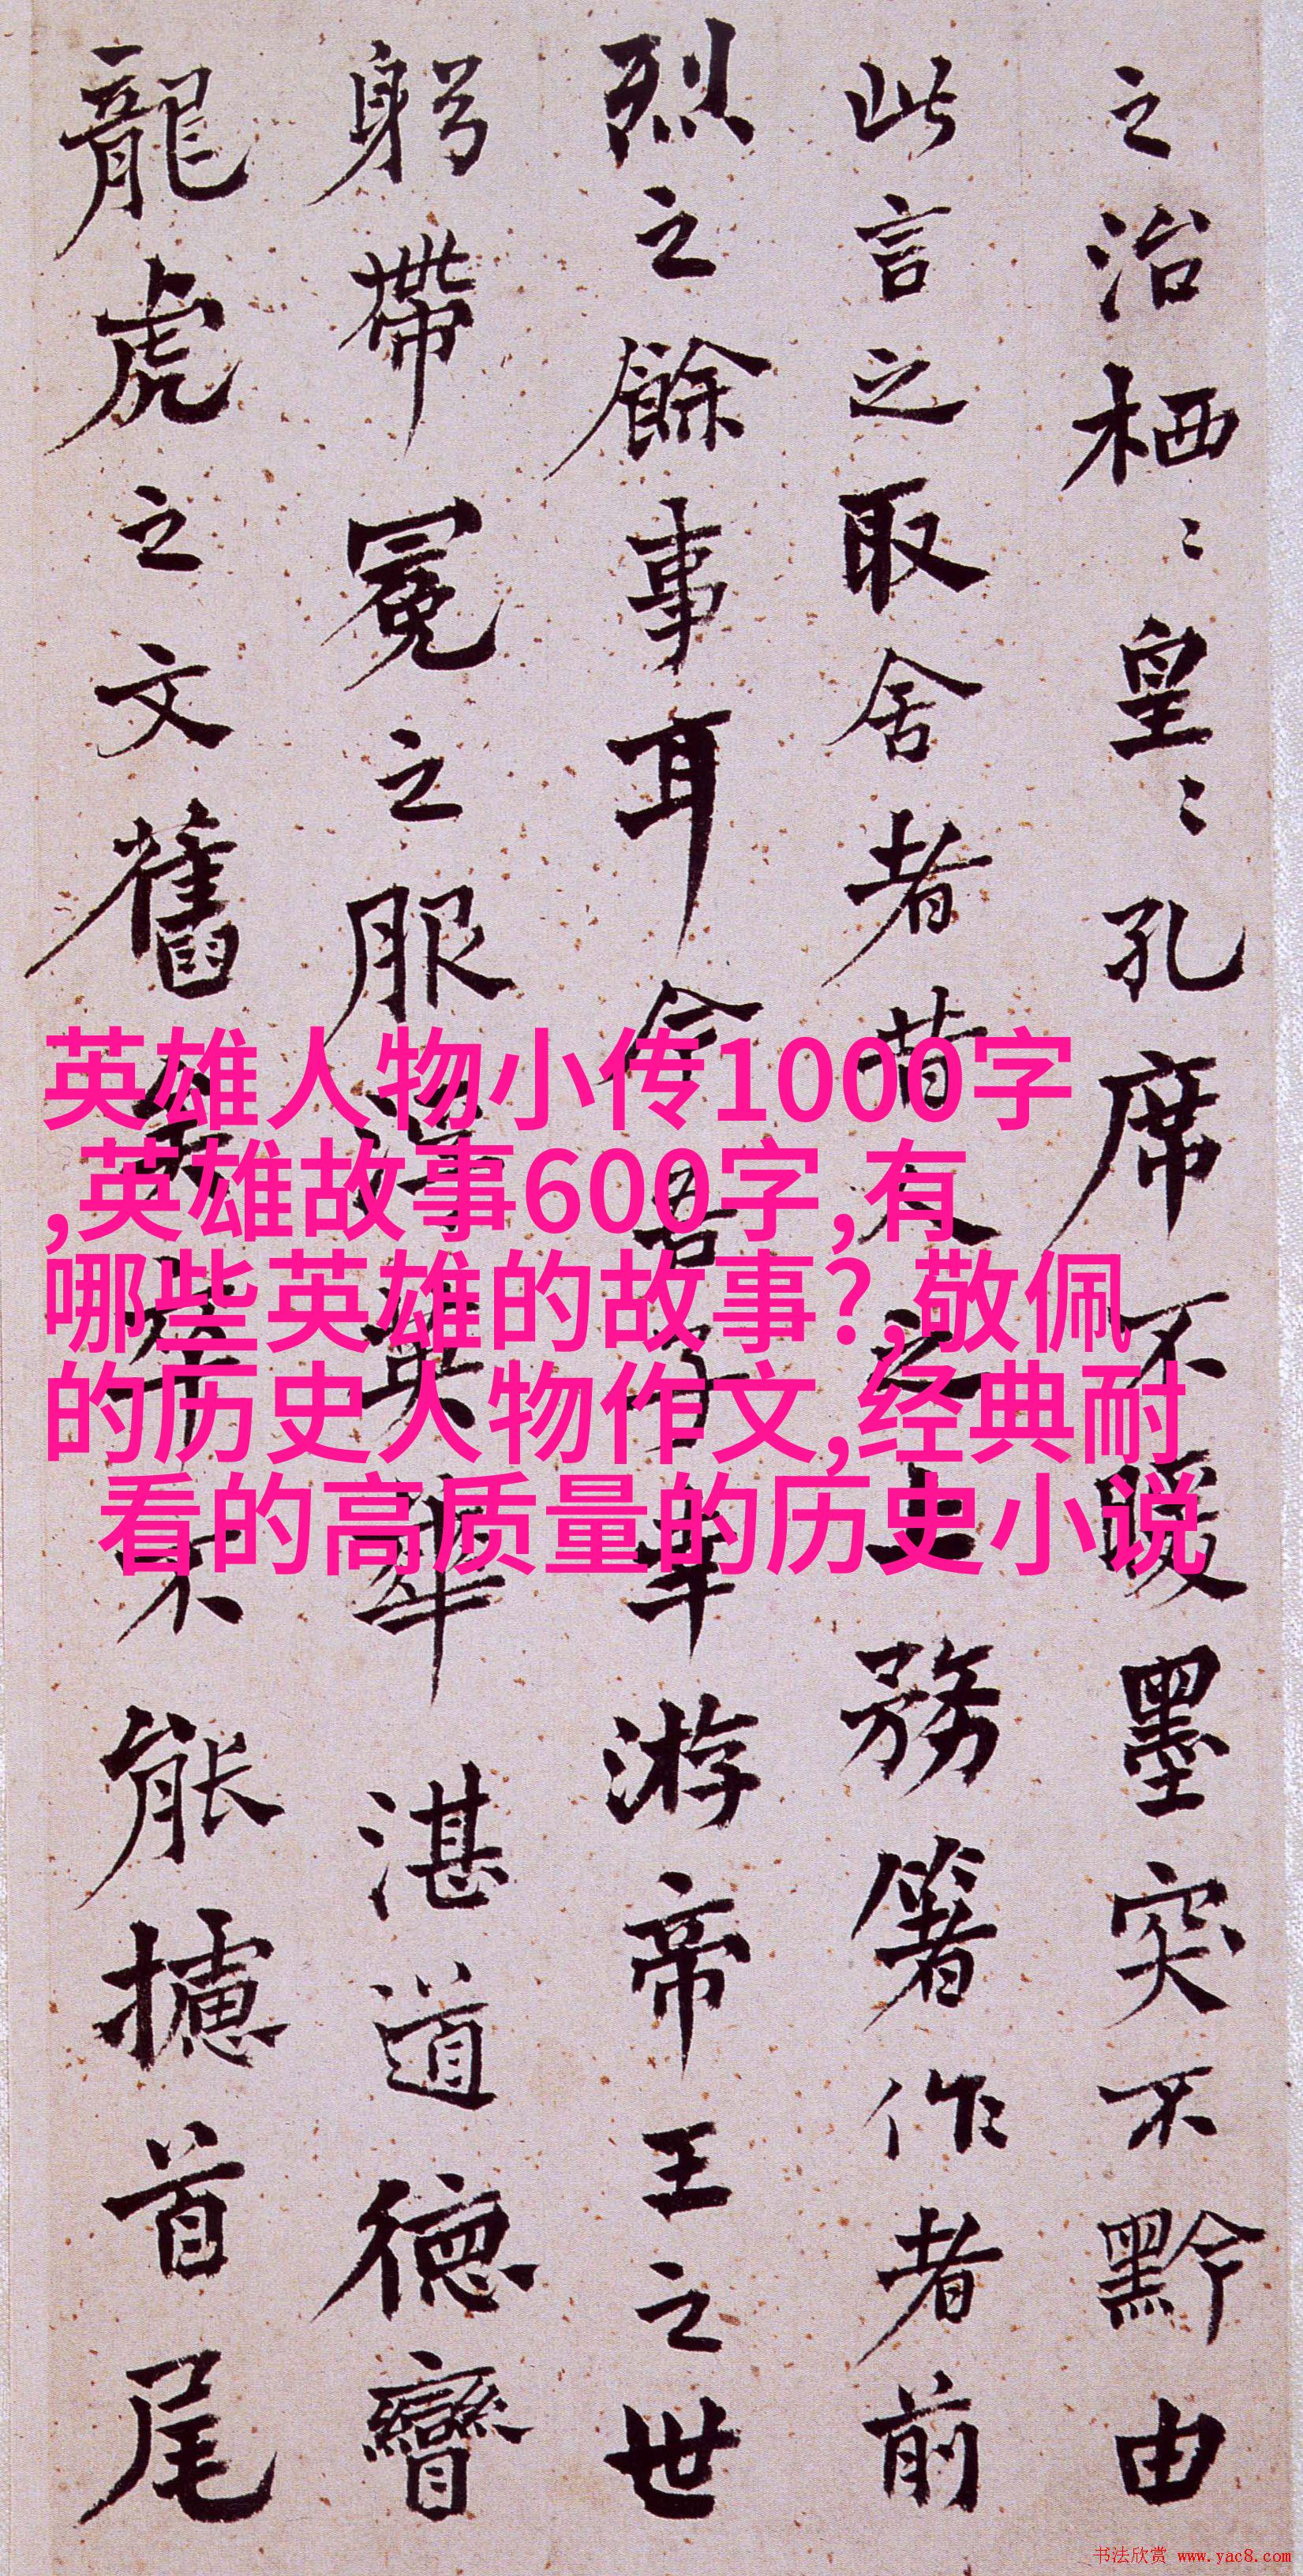 之治栖〻皇〻孔席不暖墨突不黔由
此言之取舍者昔人之上務箸作者前
烈之餘事耳今吾子幸游帝王之世
躬帶冕之服浮英華湛道德矕
龍虎之文舊矣卒不能攄首尾
英雄人物小传1000字
,英雄故事600字,有
哪些英雄的故事?,敬佩
的历史人物作文,经典耐
看的高质量的历史小说
书法欣赏 www.yac8.com